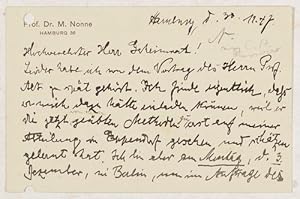 Prof. Dr. M. Nonne
HAMBURG 36
Hamburg d. 30. 11. 17
Hochverehrter Herr Geheimrat!
Leider habe ich von dem Vortrag des Herrn Prof.
zu spät gehört. Ich finde eigentlich, daß
er mich dazu hätte einladen können, weil er
die jetzt geübten Methoden erst auf meiner
Abteilung in Eppendorf gesehen und schätzen
gelernt hat. Ich bin aber am Montag, d. 3.
Dezember, in Berlin, um im Auftrage des